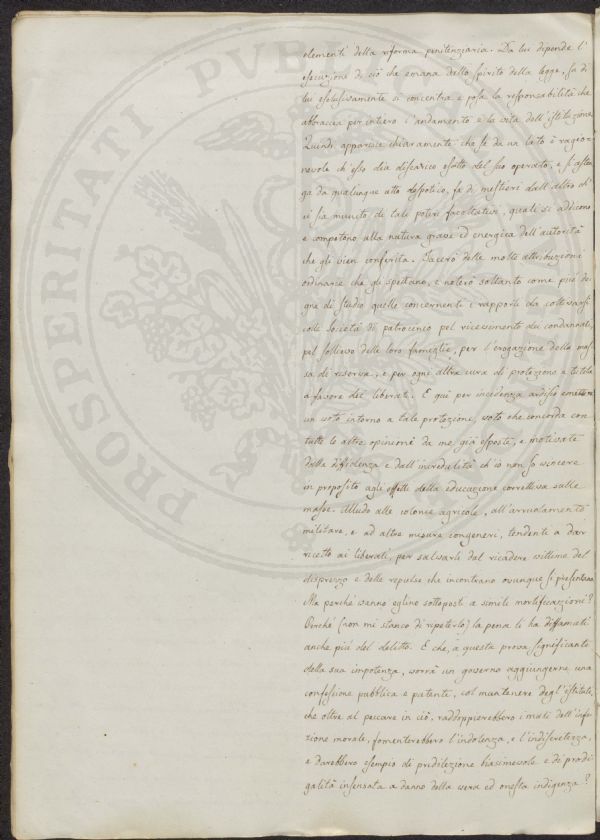 PROSPERITATI PVBLIC
elementi della riforma penitenziaria. Da lui dipende l'
esecuzione di ciò che emana dallo spirito della legge, su di
lui esclusivamente si concentra e posa la responsabilità che
abbraccia per intiero l'andamento e la vita dell'istituzione
Quindi apparisce chiaramente che se da un lato è ragio-
nevole ch'esso dia discarico esatto del suo operato, e si asten
ga da qualunque atto despotico, fa di mestieri dall'altro ch'
ei sia munito di tali poteri facoltativi, quali si addicono
e competono alla natura grave ed energica dell'autorità
che gli vien conferita. Tacerò delle molte attribuzioni
ordinarie che gli spettano, e noterò soltanto come più de-
gne di studio quelle concernenti i rapporti da coltivarsi
colle società di patrocinio pel ricevimento dei condannati,
pel sollievo delle loro famiglie, per l'erogazione della mas
sa di riserva, e per ogni altra cura di protezione e tutela
a favore dei liberati. E qui per incidenza ardisco emettere
un voto intorno a tale protezione, voto che concorda con
tutte le altre opinioni da me già esposte, e motivate
dalla diffidenza e dall'incredulità ch'io non so vincere
in proposito agli effetti della educazione correttiva sulle
masse. Alludo alle colonie agricole, all'arruolamento
militare, e ad altre misure congeneri, tendenti a dar
ricetto ai liberati, per salvarli dal ricadere vittime del
disprezzo e delle repulse che incontrano ovunque si presentano
Ma perché vanno eglino sottoposti a simili mortificazioni?
Perché (non mi stanco di ripeterlo) la pena li ha diffamati
anche più del delitto. E che, a questa prova significante
della sua impotenza, vorrà un governo aggiungerne una
confessione pubblica e patente, col mantenere degl'istituti,
che oltre al peccare in ciò, raddoppierebbero i mali dell'infe
zione morale, fomenterebbero l'indolenza, e l'indiscretezza,
e darebbero esempio di predilezione biasimevole e di prodi
galità insensata a danno della vera ed onesta indigenza?